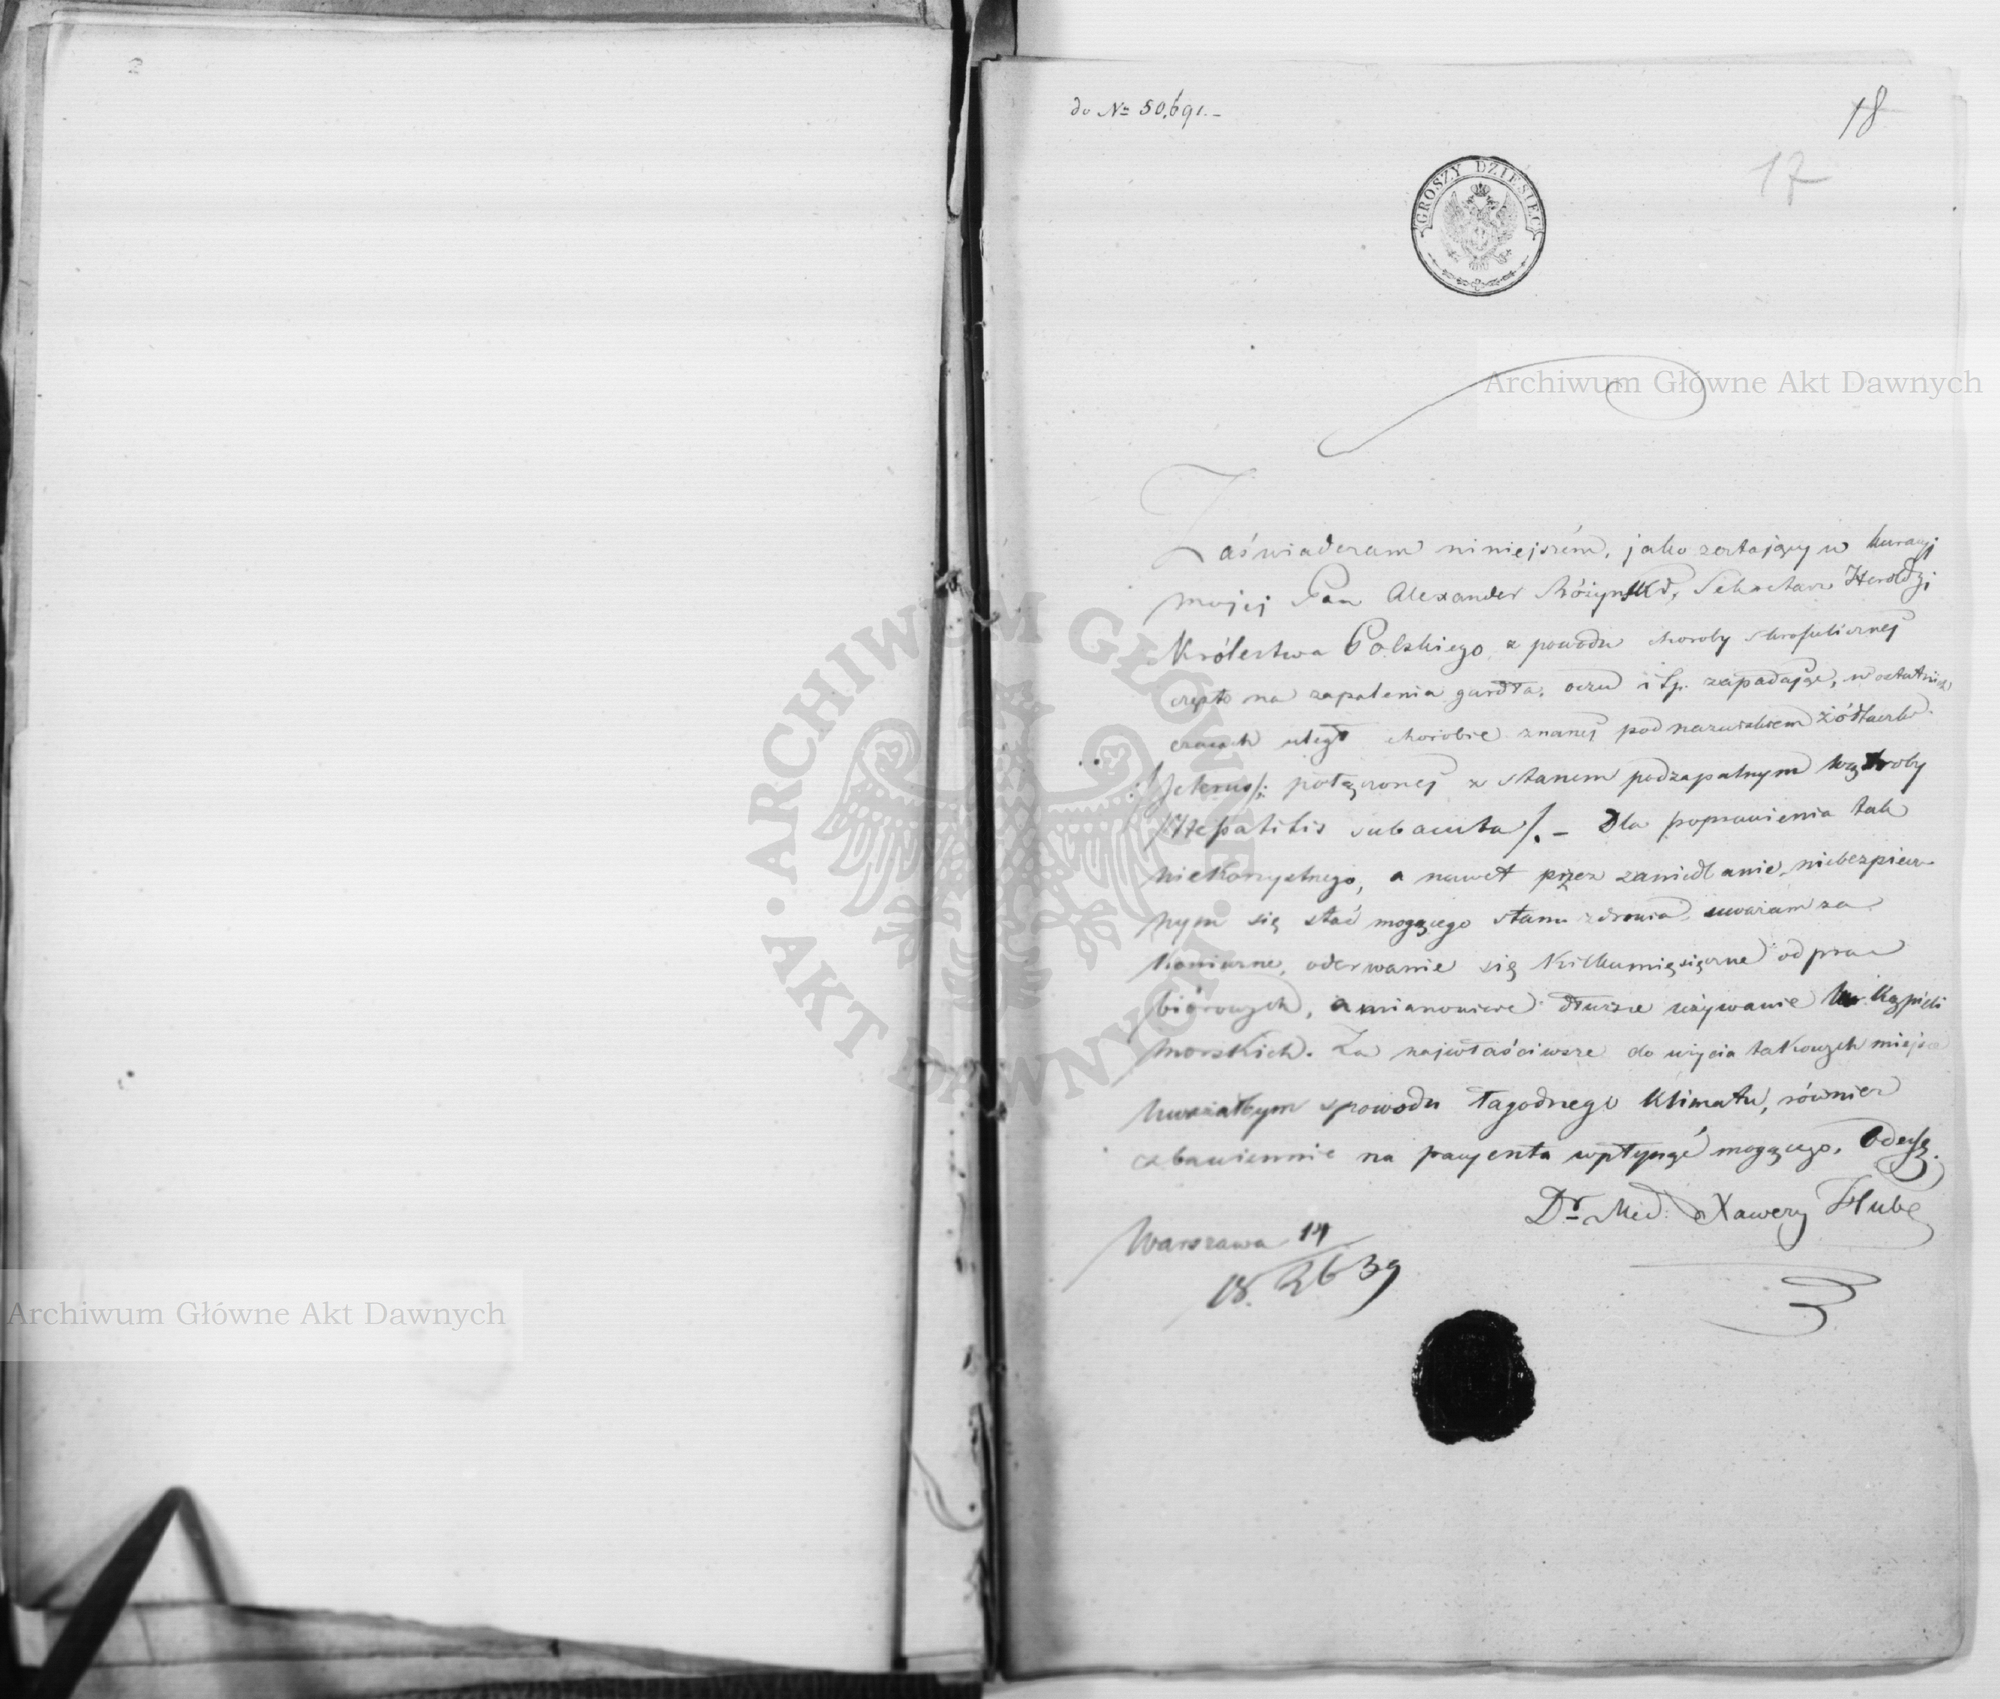 2
do № 50,691.-
18
17
GROSZY DZIESIĘĆ
Archiwum Główne Akt Dawnych
Zaświadczam niniejszém, jako zostający w kuracyi
mojej Pan Alexander Różyński, Sekretarz Heroldyi
Królestwa Polskiego z powodu choroby skrofulicznej
często na zapalenia gardła, oczu i t.p. zapadając, w ostatnich
czasach uległ chorobie znanej pod nazwiskiem żółtaczki
/:Icterus:/ połączonej z stanem podzapalnym wątroby
/Hepatitis subacuta/. - Dla poprawienia tak
niekorzystnego, a nawet przez zaniedbanie niebezpiecz-
nym się stać mogącego stanu zdrowia, uważam za
konieczne, oderwanie się kilkumiesięczne od prac
biórowych, a mianowicie dłuższe używanie kąpieli
morskich. Za najwłaściwsze do użycia takowych miejsce
uważałbym z powodu łagodnego klimatu, również
zbawiennie na pacjenta wpłynąć mogącego, Odessę.
Dr Med: Xawery Hube
Warszawa 14
18 26 39
Archiwum Główne Akt Dawnych
ARCHIWUM GŁÓWNE · AKT DAWNYCH ·